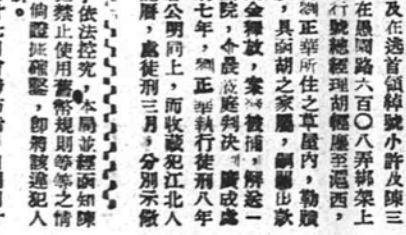 及在逃首領綽號小許及陳三
在愚園路六百〇八弄綁架上
行號總經理胡經塵至滬西，
劉正華所住之草屋內，勒贖
，具函胡之家屬，出款
金釋放，案被捕，解送一
院，今晨庭判决，廣成處
七年，劉正華執行徒刑八年
公明同上，而收藏犯江北人
，處徒刑三月，分別示儆
，依法控究，本局並經函知陳
禁止使用舊幣規則等等之情
倘證據確鑿，即將該違犯人
。